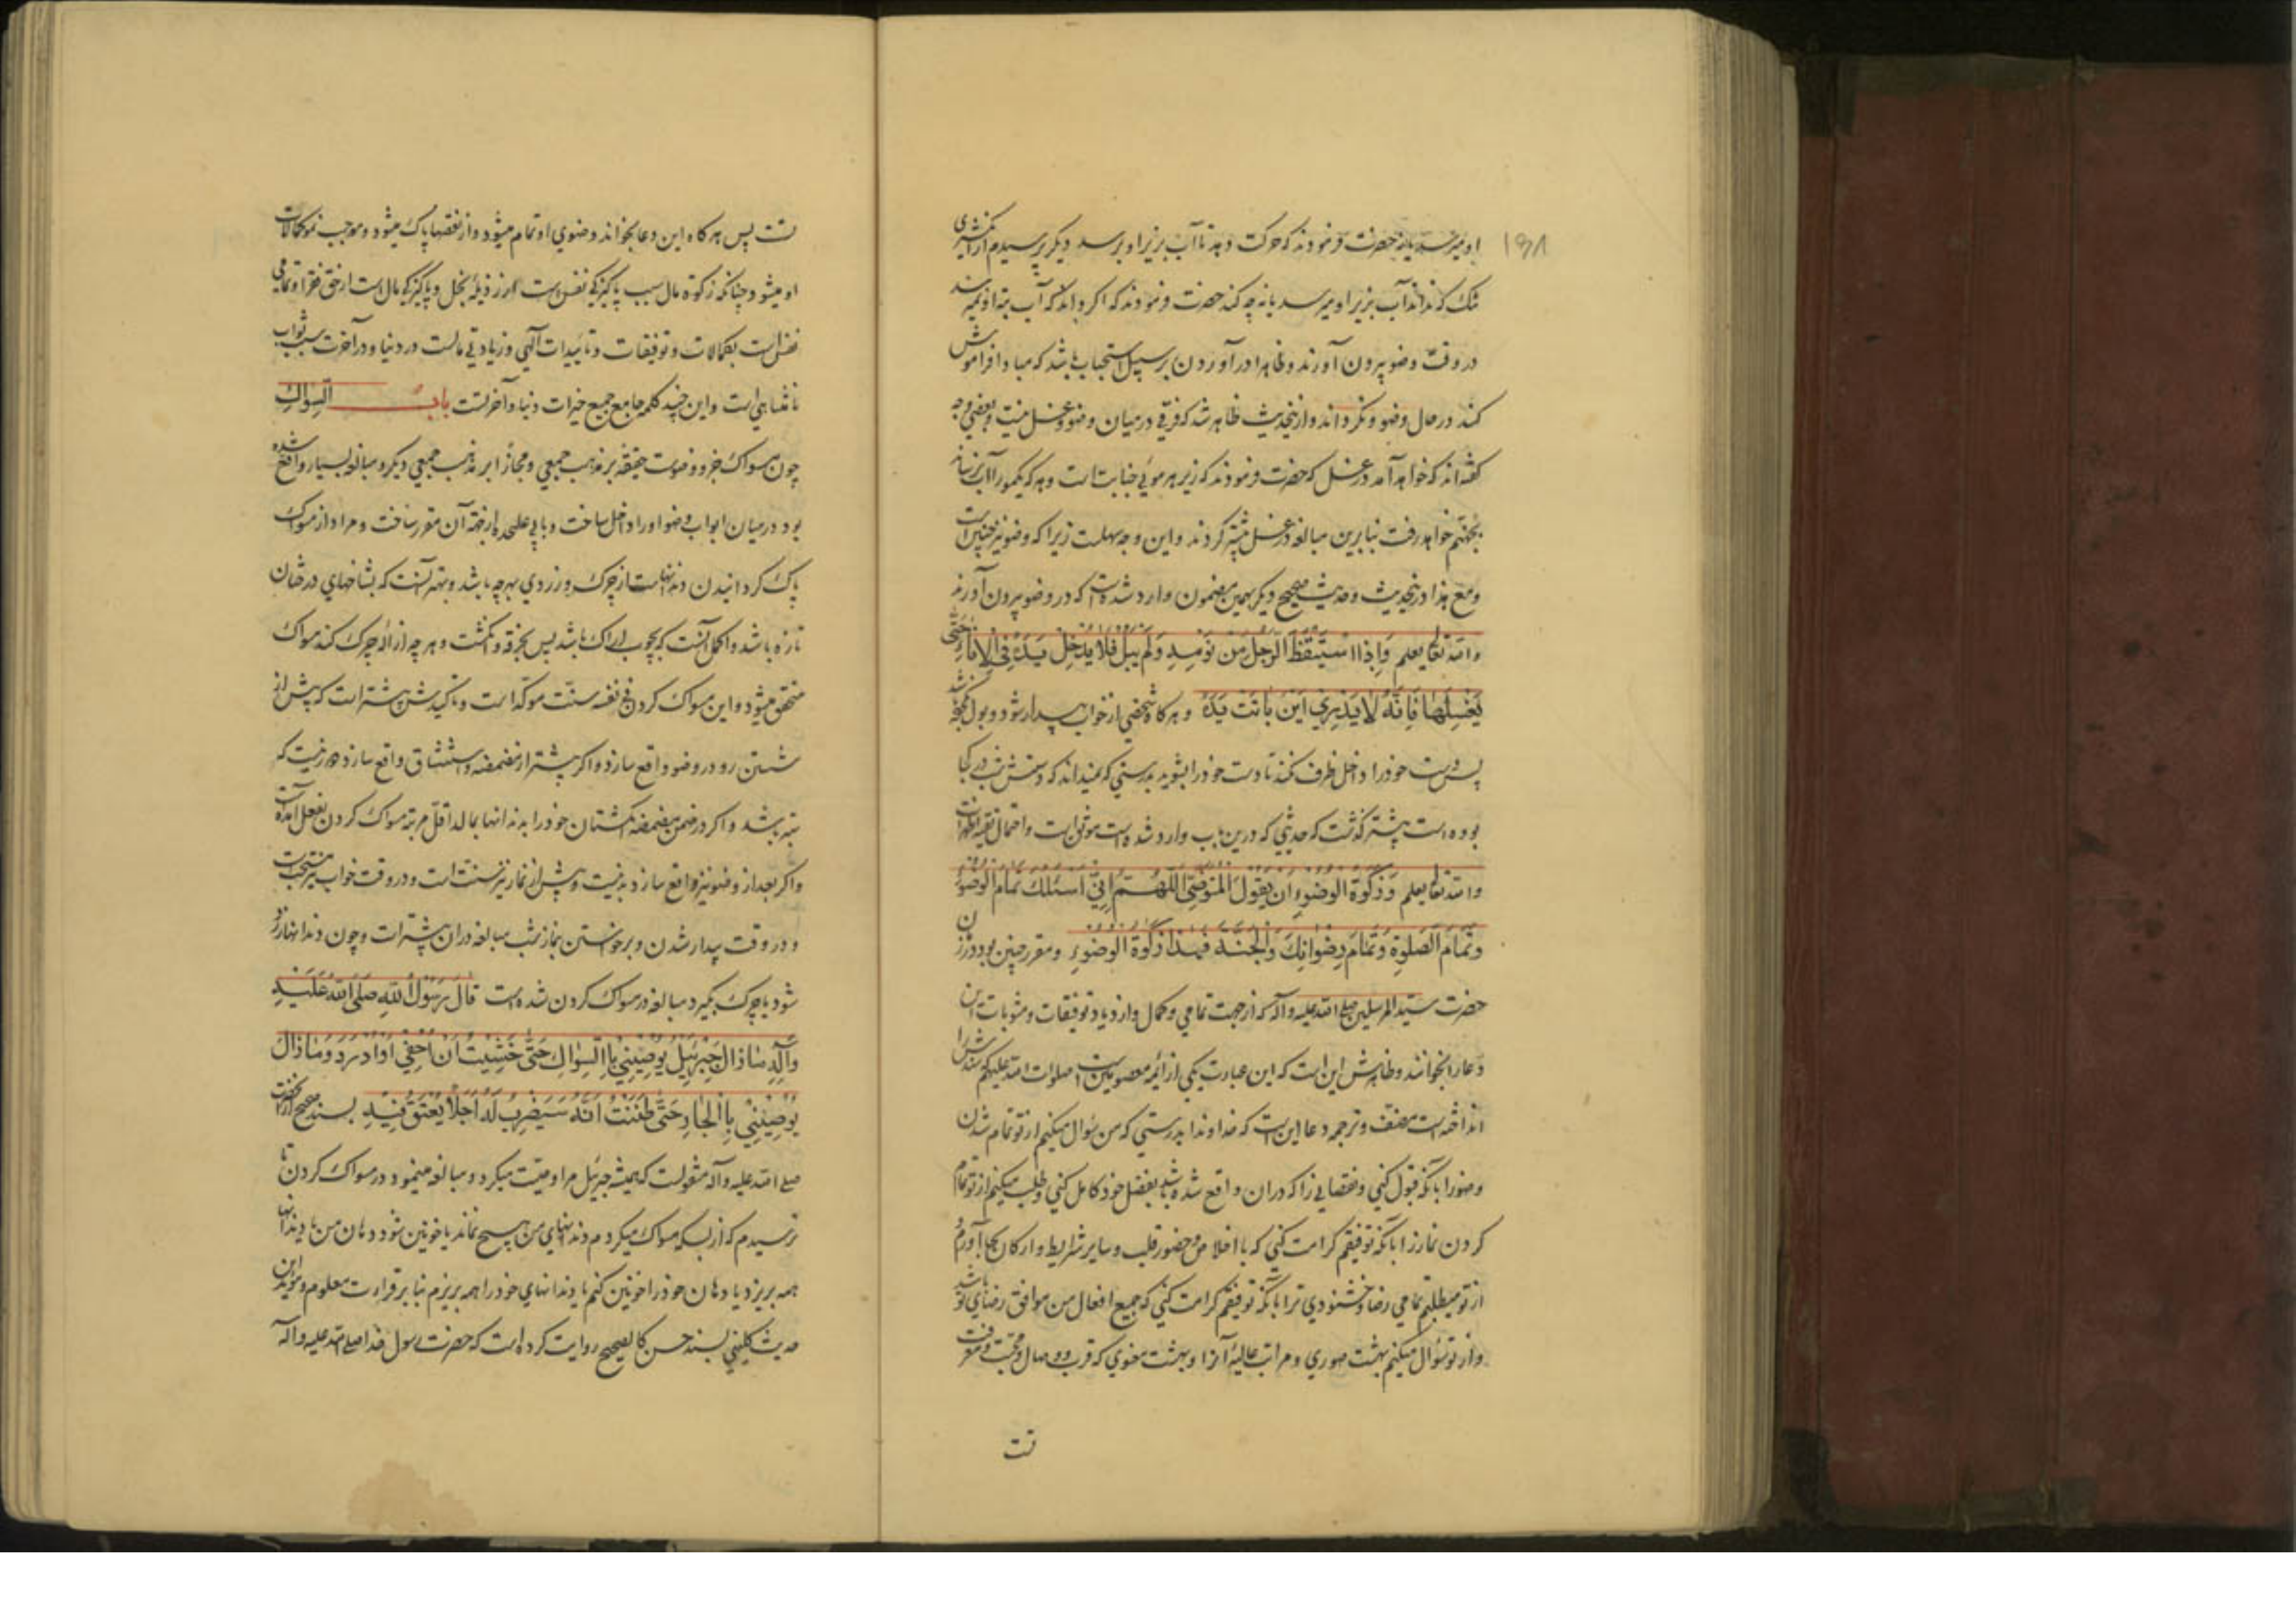 ۱۹۸
او میرسد یا نه حضرت فرمودند که حرکت دهد تا آب بزیر او برسد دیگر پرسیدم از انگشتری
تنک که نداند آب بزیر او میرسد یا نه چه کند حضرت فرمودند که اکر داند که آب بته او نمیرسد
در وقت وضو بیرون آورند و ظاهرا در آوردن بر سبیل استحباب باشد که مبادا فراموش
کند در حال وضو و نکرداند و ازینحدیث ظاهر شد که فرقی در میان وضو و غسل نیست و بعضی وجه
کفته اند که خواهد آمد در غسل که حضرت فرمودند که زیر هر موئی جنابت است و هر که یکمو را آب نرساند
بجهنم خواهد رفت بنابرین مبالغه در غسل بیشتر کردند و این وجه سهلست زیرا که وضو نیز چنین است
و مع هذا درینحدیث و حدیث صحیح دیکر بهمین مضمون وارد شده است که در وضو بیرون آورند
و الله تعالی یعلم وَاِذَا اسْتَیْقَظَ الرَّجُلُ مِنْ نَوْمِهِ وَلَمْ یَبُلْ فَلَا یُدْخِلْ یَدَهُ فِی الْاِنَاءِ حَتّی
یَغْسِلَهَا فَاِنَّهُ لَا یَدْرِی اَیْنَ بَاتَتْ یَدُهُ و هر کاه شخصی از خواب بیدار شود و بول نکرده باشد
پس دست خود را داخل ظرف نکند تا دست خود را بشوید بدرستی که نمیداند که دستش شب در کجا
بوده است پیشتر کذشت که حدیثی که درین باب وارد شده است موثق است و احتمال تقیه اظهر است
و الله تعالی یعلم وَزَکٰوةُ الْوُضُوءِ اَنْ یَقُولَ الْمُتَوَضِّی اَللّٰهُمَّ اِنِّی اَسْئَلُکَ تَمَامَ الْوُضُوءِ
وَتَمَامَ الصَّلٰوةِ وَتَمَامَ رِضْوَانِکَ وَالْجَنَّةَ فَهٰذَا زَکٰوةُ الْوُضُوءِ و مقرر چنین بود در زمان
حضرت سید المرسلین صلی الله علیه و آله که از جهت تمامی و کمال و ازدیاد توفیقات و مثوبات این
دعا را بخوانند و ظاهرش این است که این عبارت یکی از ائمه معصومین است صلوات الله علیهم سندش را
انداخته است مصنف و ترجمه دعا این است که خداوندا بدرستی که من سؤال میکنم از تو تمام شدن
وضو را بآنکه قبول کنی و نقصانی را که در ان واقع شده باشد بفضل خود کامل کنی و طلب میکنم از تو تمام
کردن نماز را بآنکه توفیقم کرامت کنی که با اخلاص و حضور قلب و سایر شرایط و ارکان بجا آورم
از تو میطلبم تمامی رضا و خشنودی ترا بآنکه توفیقم کرامت کنی که جمیع افعال من موافق رضای تو باشد
و از تو سؤال میکنم بهشت صوری و مراتب عالیه آنرا و بهشت معنوی که قرب و وصال و محبت و معرفت
تست
تست پس هر کاه این دعا بخواند وضوی او تمام میشود و از نقصها پاک میشود و موجب نمو کمالات
او میشود چنانکه زکوة مال سبب پاکیزکی نفس است از رذیله بخل و پاکیزکی مال است از حق فقرا و تمامی
نفس است بکمالات و توفیقات و تاییدات آلهی و زیادتی مالست در دنیا و در آخرت سبب ثواب
نامتناهی است و این چند کلمه جامع جمیع خیرات دنیا و آخرتست بابُ السِّوَاکِ
چون مسواک جزو وضوست حقیقة بر مذهب جمعی و مجازا بر مذهب جمعی دیکر و مبالغه بسیار واقع شده
بود در میان ابواب وضو او را داخل ساخت و بابی علیحده از جهة آن مقرر ساخت و مراد از مسواک
پاک کردانیدن دندانهاست از چرک و زردی بهر چه باشد و بهتر آنست که بشاخهای درختان
تازه باشد و اکمل آنست که بچوب اراک باشد پس بخرقه و انکشت و هر چه ازاله چرک کند مسواک
متحقق میشود و این مسواک کردن فی نفسه سنت مؤکد است و تاکیدش بیشتر است که پیش از
شستن رو در وضو واقع سازد و اکر پیشتر از مضمضه و استنشاق واقع سازد دور نیست که
بهتر باشد و اکر در ضمن مضمضه انکشتان خود را بدندانها بمالد اقل مرتبه مسواک کردن بفعل آمده است
و اکر بعد از وضو نیز واقع سازد بد نیست و پیش از نماز نیز سنت است و در وقت خواب نیز مستحبست
و در وقت بیدار شدن و برخواستن بنماز شب مبالغه در ان بیشتر است و چون دندانها زرد
شود یا چرک بگیرد مبالغه در مسواک کردن شده است قَالَ رَسُولُ اللهِ صَلَّی اللهُ عَلَیْهِ
وَآلِهِ مَا زَالَ جِبْرَئِیلُ یُوصِینِی بِالسِّوَاکِ حَتّٰی خَشِیتُ اَنْ اُحْفِیَ اَوْ اَدْرَدَ وَمَا زَالَ
یُوصِینِی بِالْجَارِ حَتّٰی ظَنَنْتُ اَنَّهُ سَیَضْرِبُ لَهُ اَجَلًا یُعْتَقُ فِیهِ بسند صحیح از آنحضرت
صلی الله علیه و آله منقولست که همیشه جبرئیل مرا وصیت میکرد و مبالغه مینمود در مسواک کردن تا
ترسیدم که از بسکه مسواک میکردم دندانهای من هیچ نماند یا خونین شود دهان من یا دندانها
همه بریزد یا دهان خود را خونین کنم یا دندانهای خود را همه بریزم بنا بر قراءت معلوم و مؤید این
حدیث کلینی بسند حسن کالصحیح روایت کرده است که حضرت رسول خدا صلی الله علیه و آله